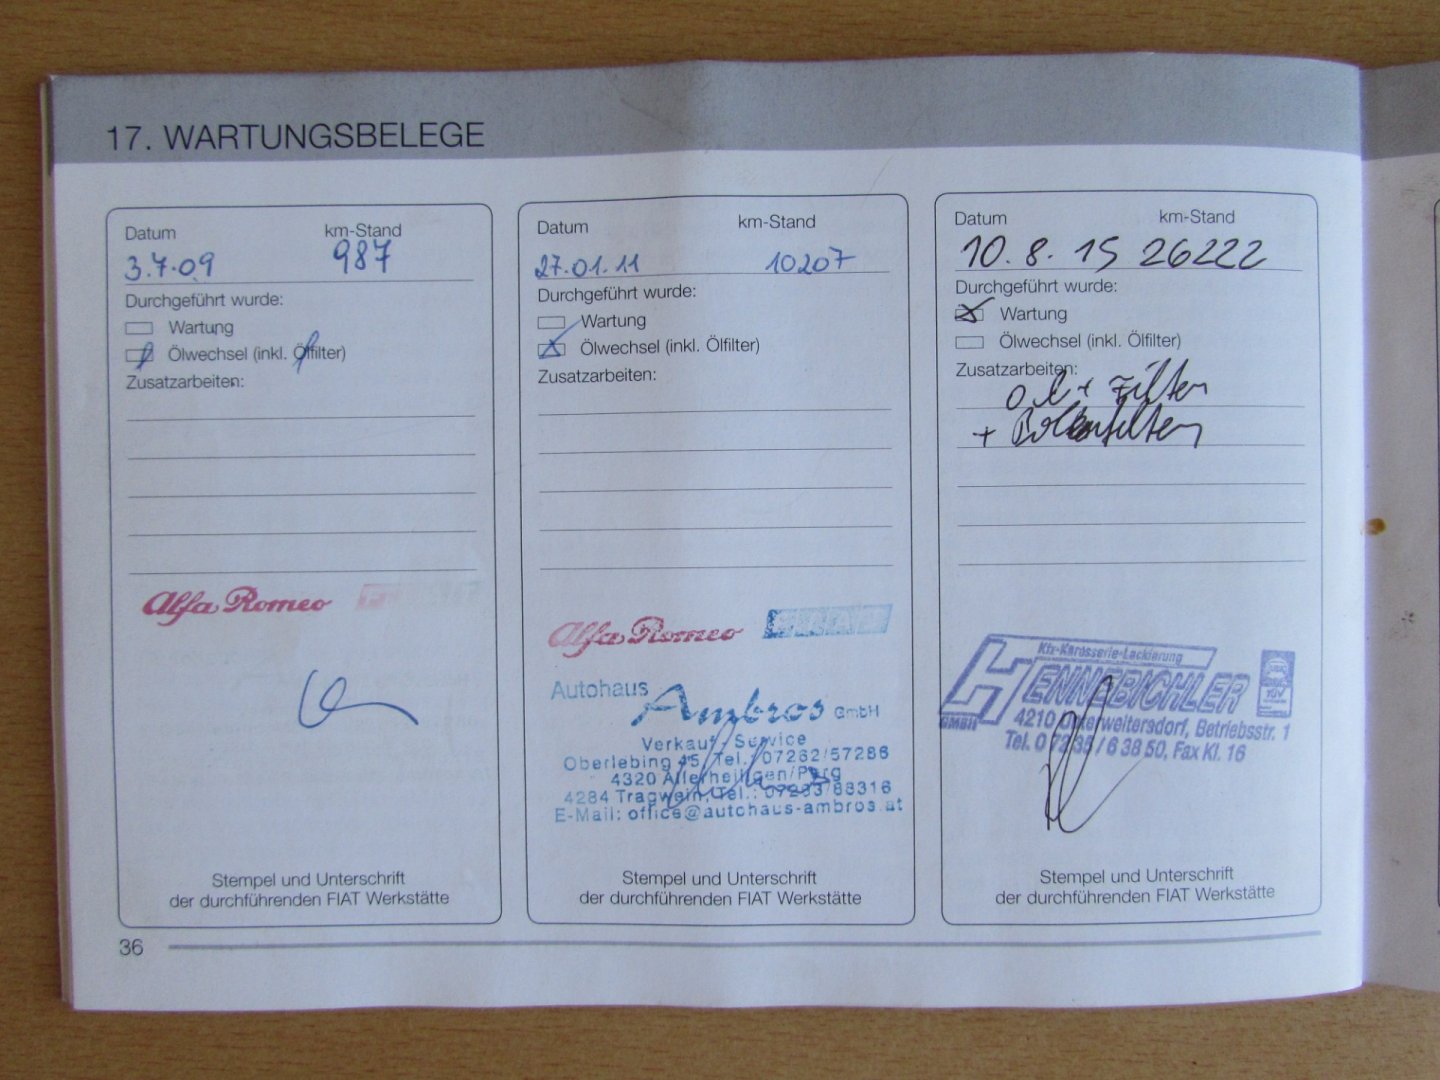 17. WARTUNGSBELEGE
Datum km-Stand
3.7.09 987
Durchgeführt wurde:
Wartung
Ölwechsel (inkl. Ölfilter)
Zusatzarbeiten:
Alfa Romeo
Stempel und Unterschrift
der durchführenden FIAT Werkstätte
Datum km-Stand
27.01.11 10207
Durchgeführt wurde:
Wartung
Ölwechsel (inkl. Ölfilter)
Zusatzarbeiten:
Alfa Romeo
Autohaus Ambros GmbH
Verkauf / Service
Oberlebing 45, Tel. 07262/57286
4320 Allerheiligen/Perg
4284 Tragwein, Tel.: 07263/88316
E-Mail: office@autohaus-ambros.at
Stempel und Unterschrift
der durchführenden FIAT Werkstätte
Datum km-Stand
10.8.15 26222
Durchgeführt wurde:
Wartung
Ölwechsel (inkl. Ölfilter)
Zusatzarbeiten:
+ Filter
+
Kfz-Karosserie-Lackierung
HENNEBICHLER
GMBH
TÜV
4210 Unterweitersdorf, Betriebsstr. 1
Tel. 0 72 35 / 6 38 50, Fax Kl. 16
Stempel und Unterschrift
der durchführenden FIAT Werkstätte
36